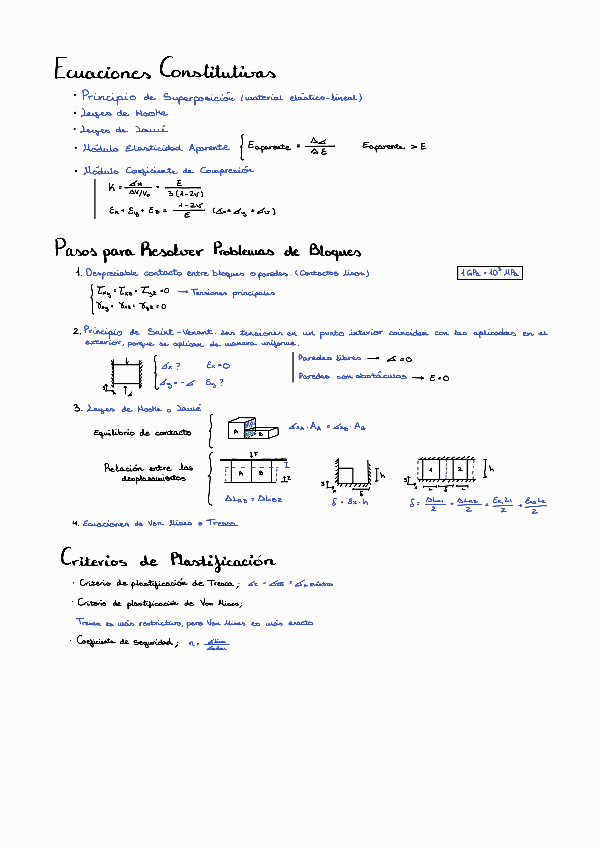 Ecuaciones Constitutivas
· Principio de Superposición (material elástico-lineal)
· Leyes de Hooke
· Leyes de Lamé
· Módulo Elasticidad Aparente { Eaparente = Δσ / Δε Eaparente > E
· Módulo Coeficiente de Compresión
K = σm / ΔV/V₀ = E / 3(1-2ν)
εx + εy + εz = 1-2ν / E (σx + σy + σz)
Pasos para Resolver Problemas de Bloques
1. Despreciable contacto entre bloques o paredes. (Contactos lisos) 1 GPa = 10³ MPa
τxy = τxz = τyz = 0 → Tensiones principales
γxy = γxz = γyz = 0
2. Principio de Saint-Venant. Las tensiones en un punto interior coinciden con las aplicadas en el
exterior, porque se aplican de manera uniforme.
σx ? εx = 0 Paredes libres → σ = 0
σy = -σ εy ? Paredes con obstáculos → ε = 0
3. Leyes de Hooke o Lamé
Equilibrio de contacto A B σxA · AA = σxB · AB
Relación entre los
desplazamientos
A B F z h 1 2 h
ΔLAZ = ΔLBZ δ = εx · h
4. Ecuaciones de Von Mises o Tresca
Criterios de Plastificación
· Criterio de plastificación de Tresca;
· Criterio de plastificación de Von Mises;
Tresca es más restrictivo, pero Von Mises es más exacto
· Coeficiente de seguridad; n =